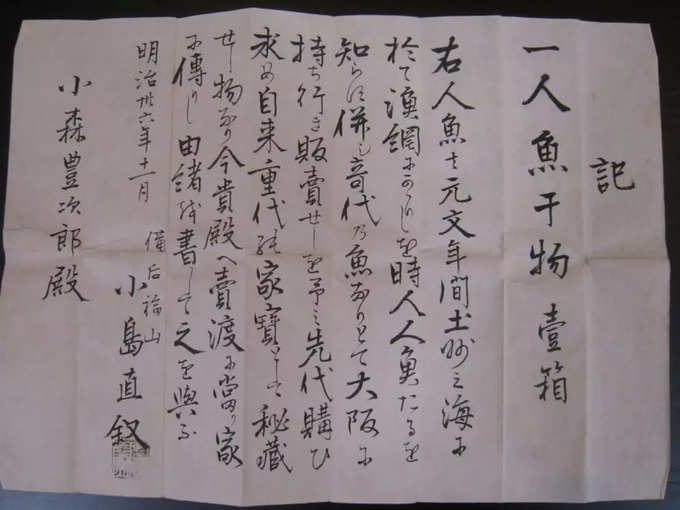 記
一人魚干物 壹箱
右人魚は元文年間土州之海に
於て漁網にかゝりしを時人人魚たるを
知らす併し奇代乃魚なりとて大阪に
持ち行き販賣せしを予之先代購ひ
求め自来重代の家寶として秘藏
せし物なり今貴殿へ賣渡に當り家
に傳りし由緒を書して之を與ふ
明治卅六年十一月
備后福山
小島直叙
小森豊次郎殿